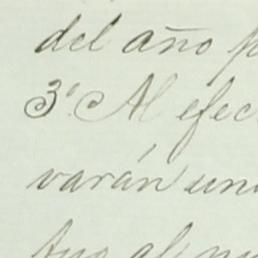 del año p
3º Al efec
varán un